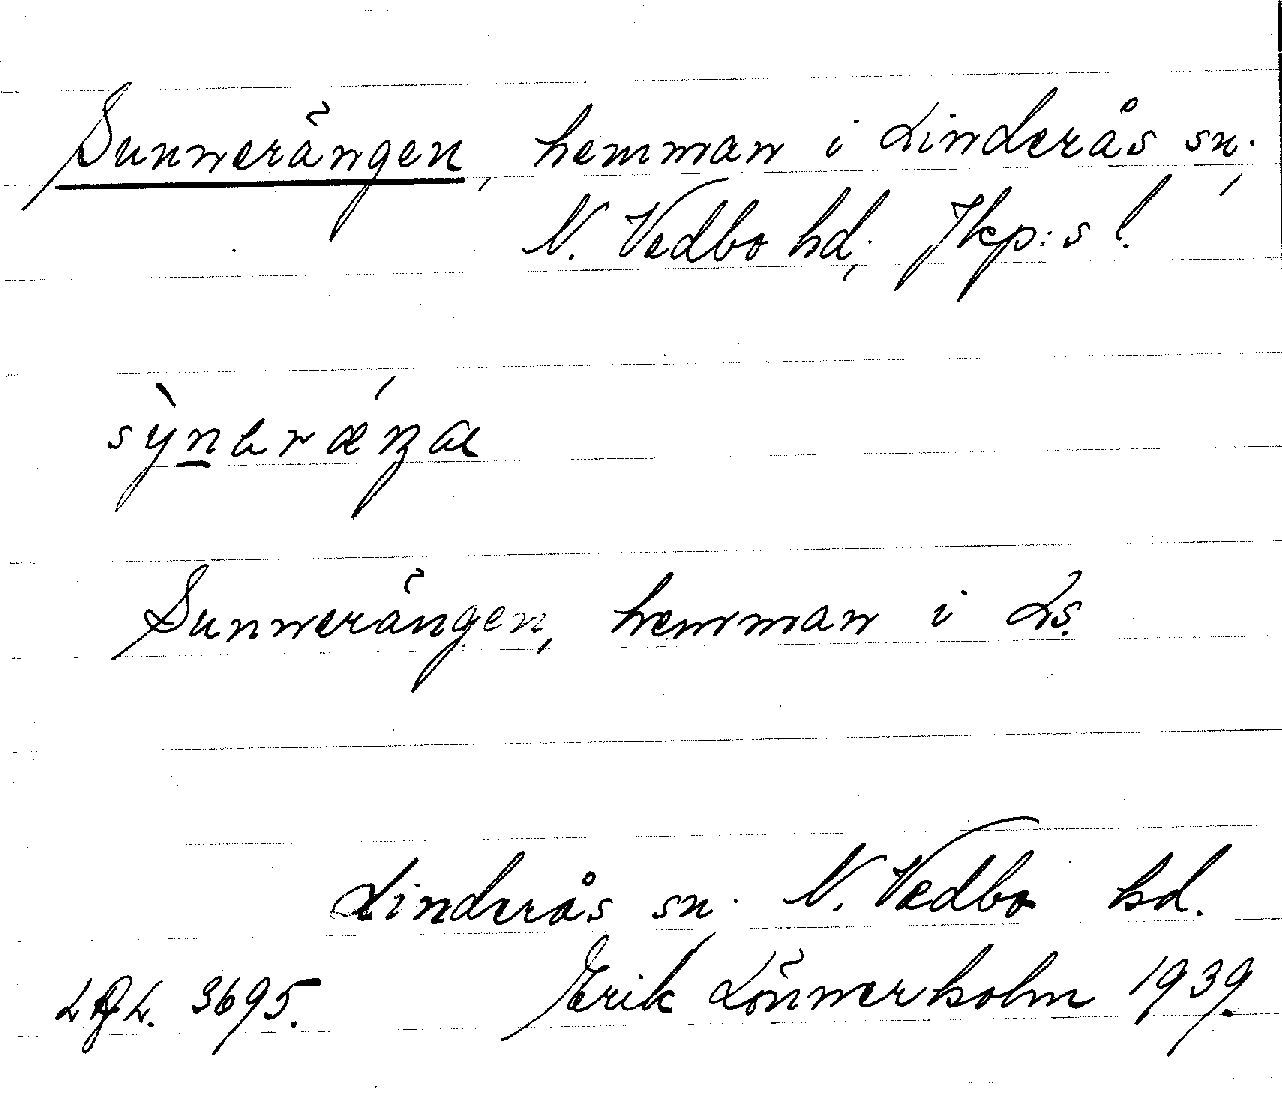 Sunnerängen, hemman i Linderås sn,
N. Vedbo hd, Jkp:s l.
Sunnerängen, hemman i Ls.
Linderås sn. N. Vedbo hd.
3695. Erik Lönnerholm 1939.